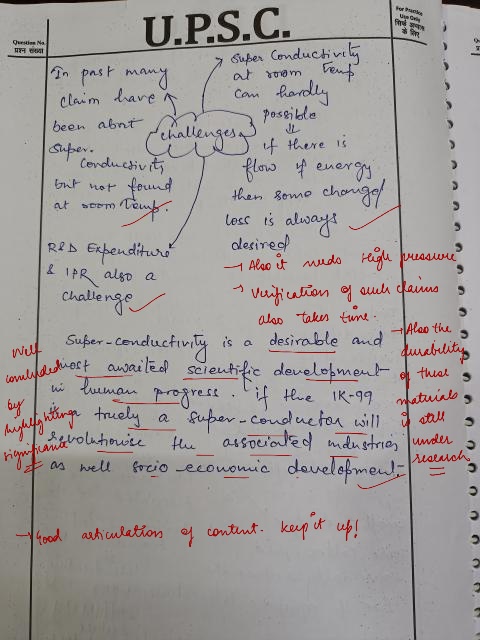 U.P.S.C.
Question No.
प्रश्न संख्या
For Practice
Use Only
सिर्फ अभ्यास
के लिए
In past many
claim have
been about
Super.
Conductivity
but not found
at room Temp.
challenges
Super Conductivity
at room Temp
can hardly
possible
⇓
if there is
flow if energy
then some change/
loss is always
desired
R&D Expenditure
& IPR also a
challenge
→ Also it needs High pressure
→ Verification of such claims
also takes time.
Super-conductivity is a desirable and
most awaited scientific development
in human progress. if the 1K-99
is truely a super-conductor will
revolutionise the associated industries
as well socio-economic development.
Well
concluded
by
highlighting
significance
→ Also the
durability
of these
materials
is still
under
research
→ Good articulation of content. Keep it up!